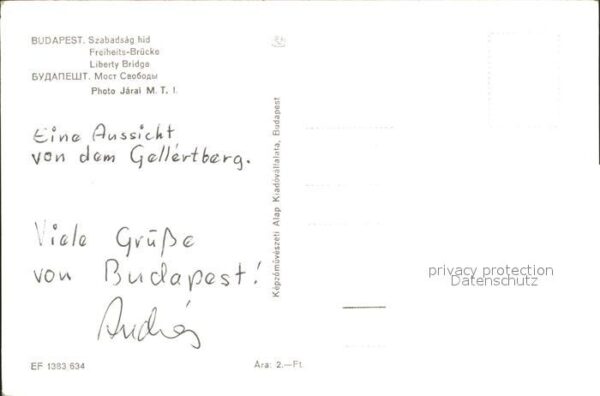 BUDAPEST. Szabadság híd
Freiheits-Brücke
Liberty Bridge
БУДАПЕШТ. Мост Свободы
Photo Járai M. T. I.
Eine Aussicht
von dem Gellértberg.
Viele Grüße
von Budapest!
András
EF 1383 634
Ára: 2.—Ft
Képzőművészeti Alap Kiadóvállalata, Budapest
privacy protection
Datenschutz